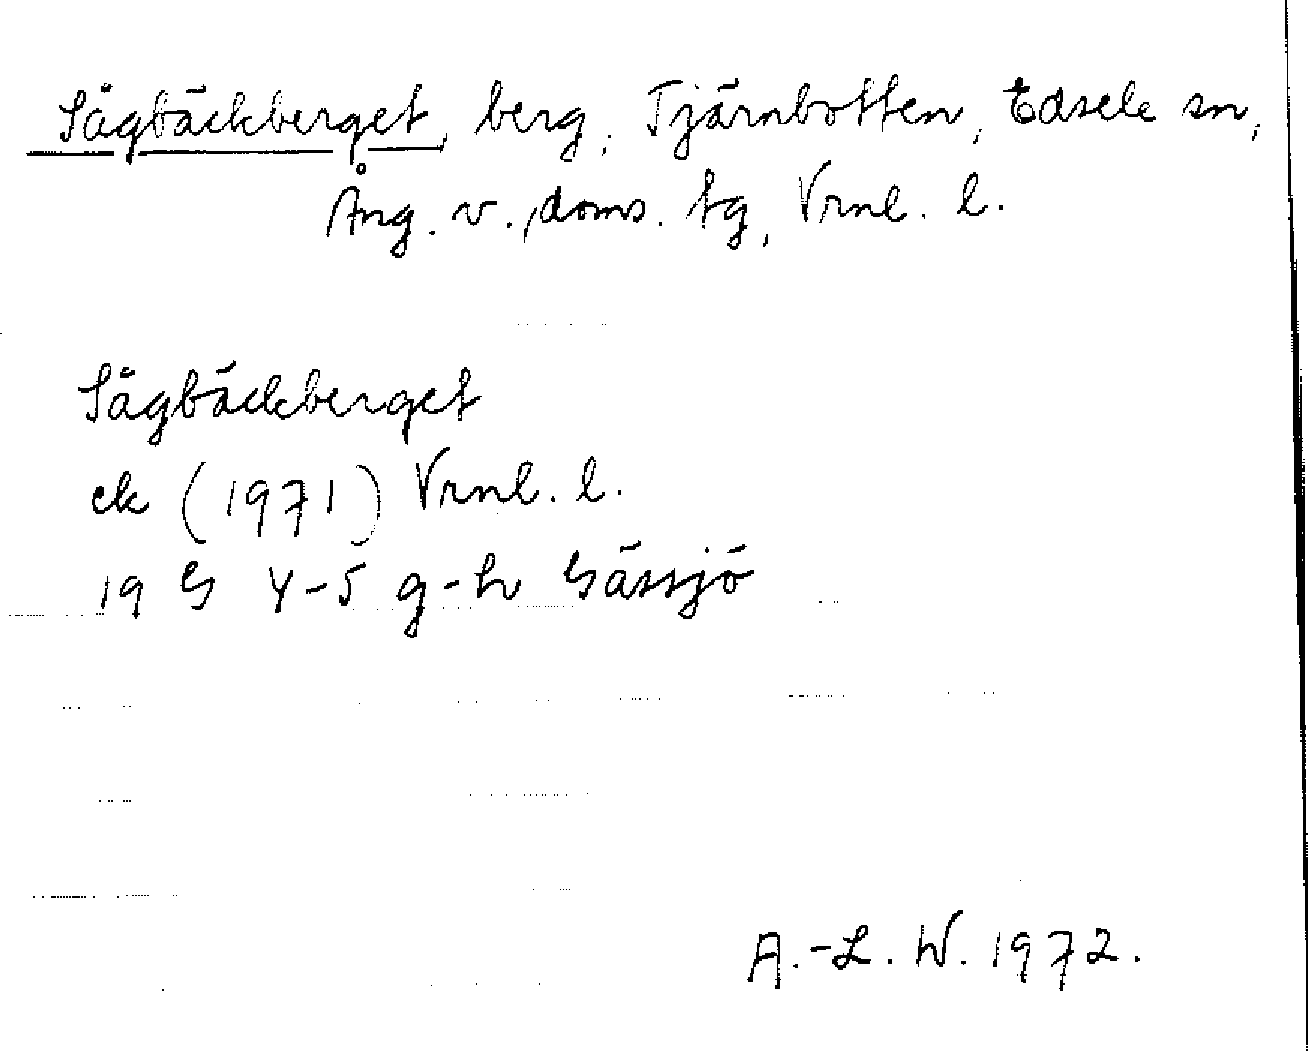 Sågbäckberget, berg, Tjärnbotten, Edsele sn,
Ång. v., doms. tg, Vrnl. l.
Sågbäckberget
ek (1971) Vrnl. l.
19 G 4-5 g-h Gässjö
A.-L. W. 1972.